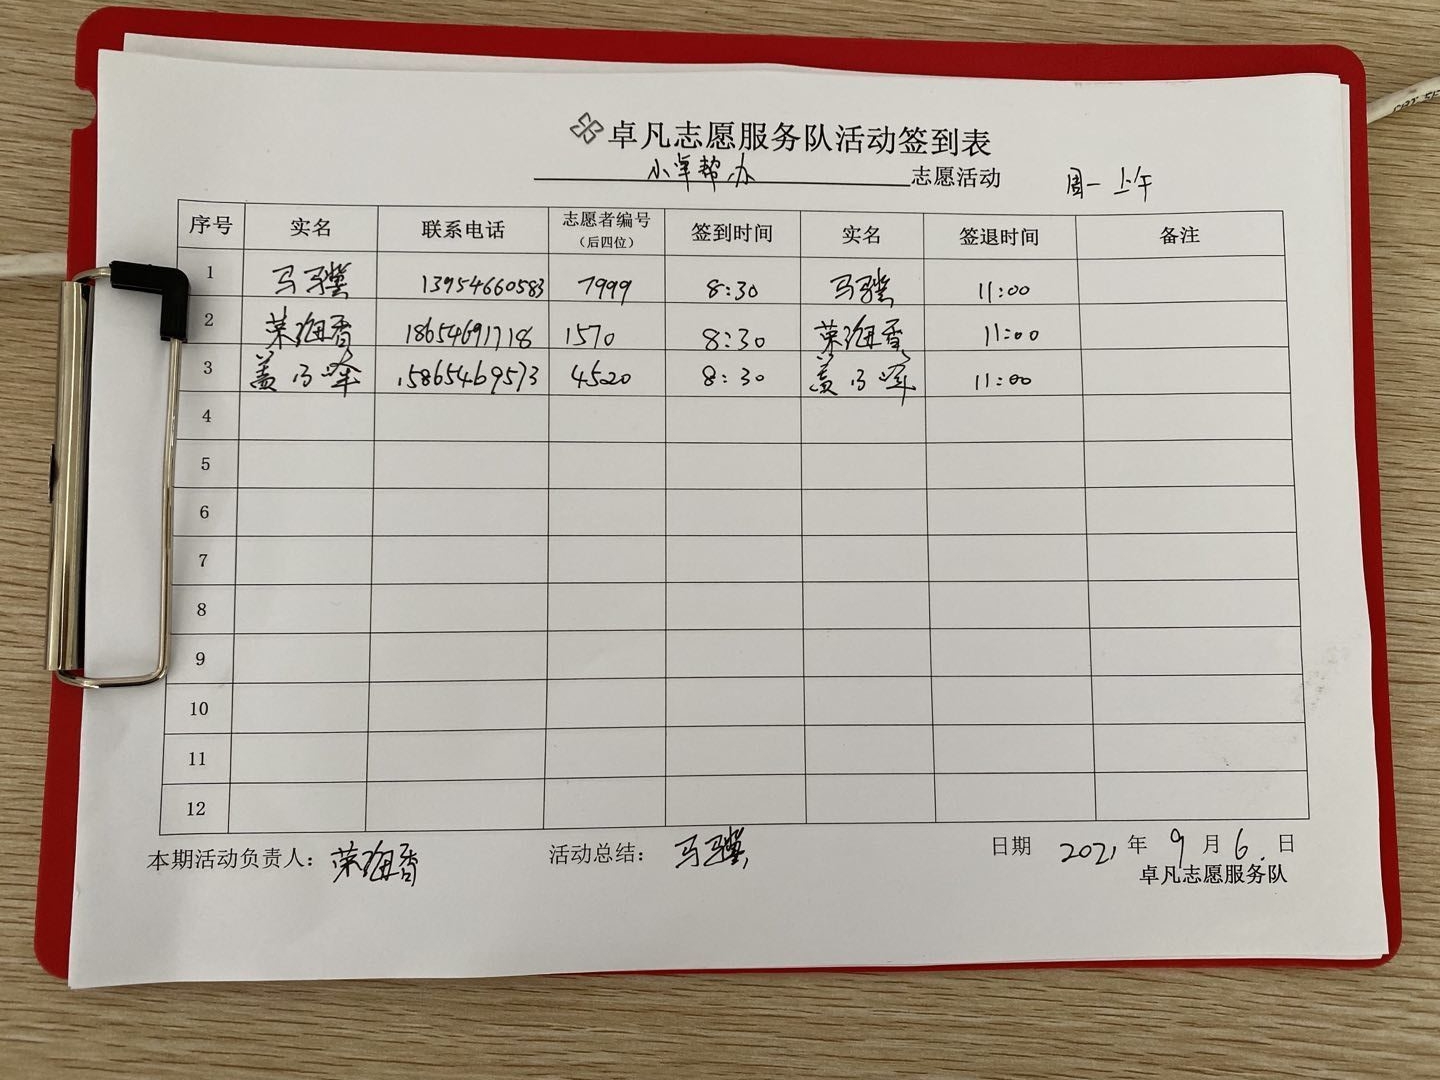 卓凡志愿服务队活动签到表
小卓帮办志愿活动 周一上午
序号 实名 联系电话 志愿者编号（后四位） 签到时间 实名 签退时间 备注
1 马骥 13954660583 7999 8:30 马骥 11:00
2 荣海香 18654691718 1570 8:30 荣海香 11:00
3 盖 15865469573 4520 8:30 盖 11:00
4
5
6
7
8
9
10
11
12
本期活动负责人：荣海香 活动总结：马骥 日期 2021年9月6.日
卓凡志愿服务队